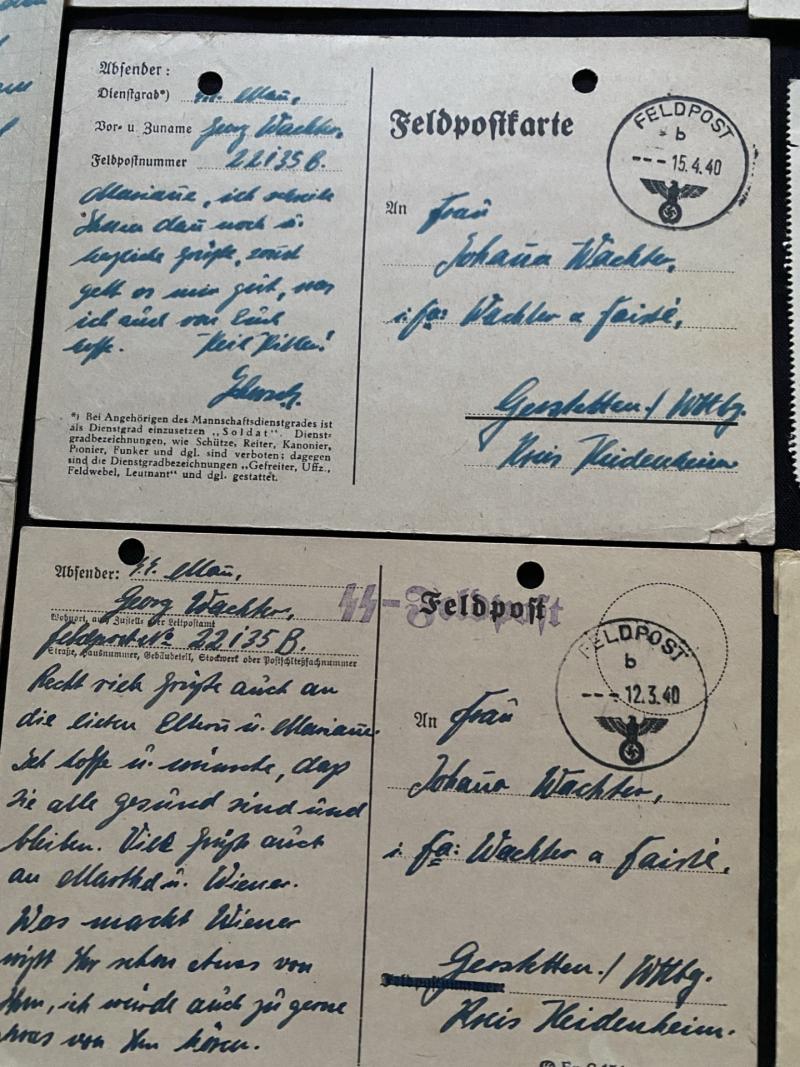 Absender:
Dienstgrad*) Mann,
Vor- u. Zuname Georg Wachter,
Feldpostnummer 22135 B.
Mariane, ich schreibe
Ihnen dann noch u.
herzliche Grüße, sonst
geht es mir gut, was
ich auch von Euch
hoffe. Heil Hitler!
*) Bei Angehörigen des Mannschaftsdienstgrades ist
als Dienstgrad einzusetzen „Soldat“. Dienst-
gradbezeichnungen, wie Schütze, Reiter, Kanonier,
Pionier, Funker und dgl. sind verboten; dagegen
sind die Dienstgradbezeichnungen „Gefreiter, Uffz.,
Feldwebel, Leutnant“ und dgl. gestattet.
Feldpostkarte
FELDPOST
b
--- 15.4.40
An Frau
Johana Wachter,
i. Fa: Wachter u Faisté,
Gerstetten / Wttbg.
Kreis Heidenheim
Absender: SS. Mann,
Georg Wachter,
Wohnort, auch Zustell- oder Leitpostamt
Feldpost No 22135 B.
Straße, Hausnummer, Gebäudeteil, Stockwerk oder Postschließfachnummer
Recht viele Grüße auch an
die lieben Eltern u. Mariane.
Ich hoffe u. wünsche, daß
Sie alle gesund sind und
bleiben. Viele Grüße auch
an Martha u. Wiener.
Was macht Wiener
wißt Ihr schon etwas von
Ihm, ich würde auch zu gerne
etwas von Ihm hören.
SS-Feldpost
Feldpost
FELDPOST
b
--- 12.3.40
An Frau
Johana Wachter,
i. Fa: Wachter u Faisté,
Gerstetten / Wttbg.
Kreis Heidenheim.